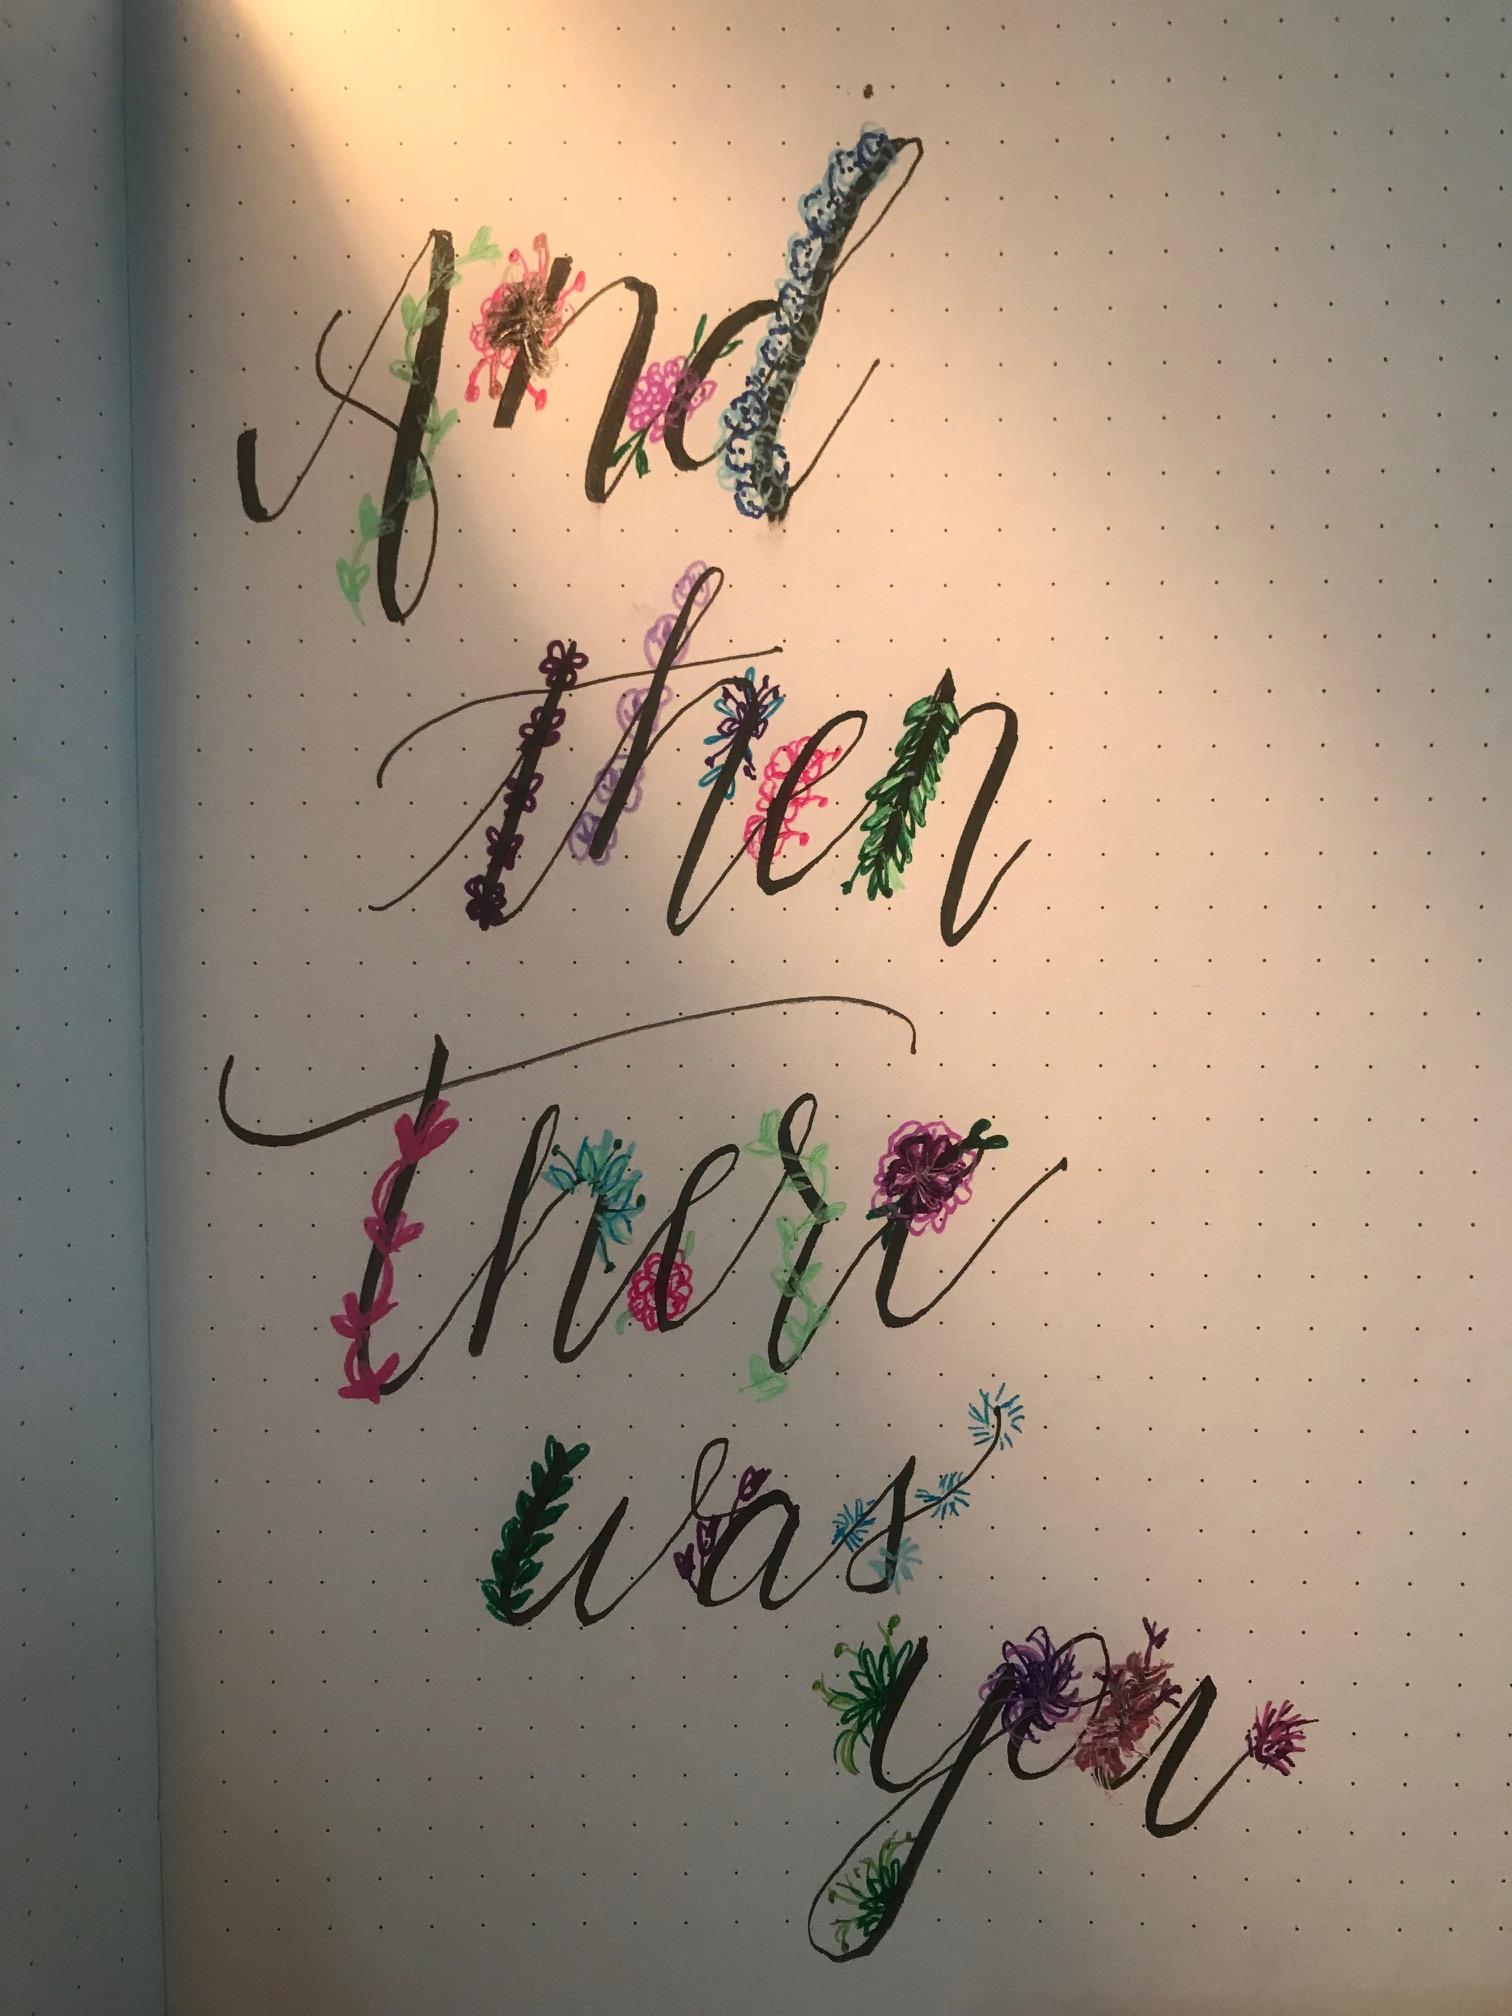 And
then
There
was
you